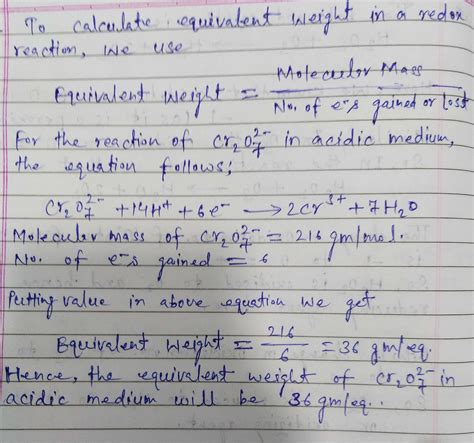 To calculate equivalent weight in a redox
reaction, we use
Equivalent weight = Molecular Mass / No. of e⁻s gained or lost
For the reaction of Cr₂O₇²⁻ in acidic medium,
the equation follows;
Cr₂O₇²⁻ + 14H⁺ + 6e⁻ → 2Cr³⁺ + 7H₂O
Molecular mass of Cr₂O₇²⁻ = 216 gm/mol.
No. of e⁻s gained = 6
Putting value in above equation we get
Equivalent weight = 216/6 = 36 gm/eq.
Hence, the equivalent weight of Cr₂O₇²⁻ in
acidic medium will be 36 gm/eq..